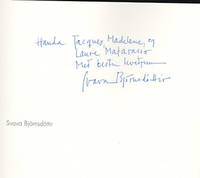 Handa Jacques, Madelene, og
Laure Matarasso
Með bestu kveðjum
Svava Björnsdóttir
Svava Björnsdóttir